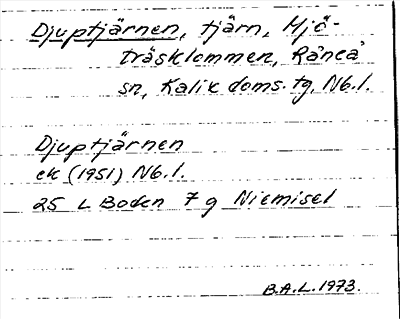 Djuptjärnen, tjärn, Mjö-
träsklommen, Råneå
sn, Kalix doms. tg, Nb. l.
Djuptjärnen
ek (1951) Nb. l.
25 L Boden 7 g Niemisel
B.A.L. 1973.